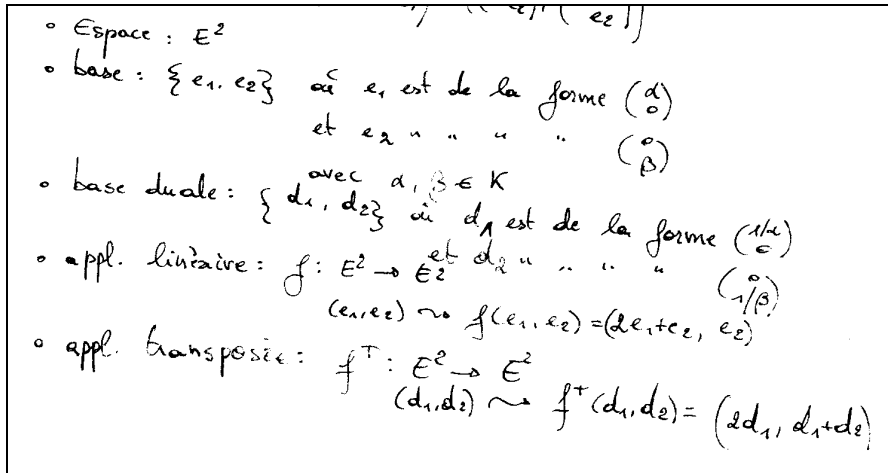 e2
• Espace : E²
• base : {e1, e2} où e1 est de la forme (α 0)
et e2 " " " " (0 β)
avec α, β ∈ K
• base duale : {d1, d2} où d1 est de la forme (1/α 0)
et d2 " " " " (0 1/β)
• appl. linéaire : f : E² → E²
(e1, e2) ⤳ f(e1, e2) = (2e1+e2, e2)
• appl. transposée : f^T : E² → E²
(d1, d2) ⤳ f^T(d1, d2) = (2d1, d1+d2)